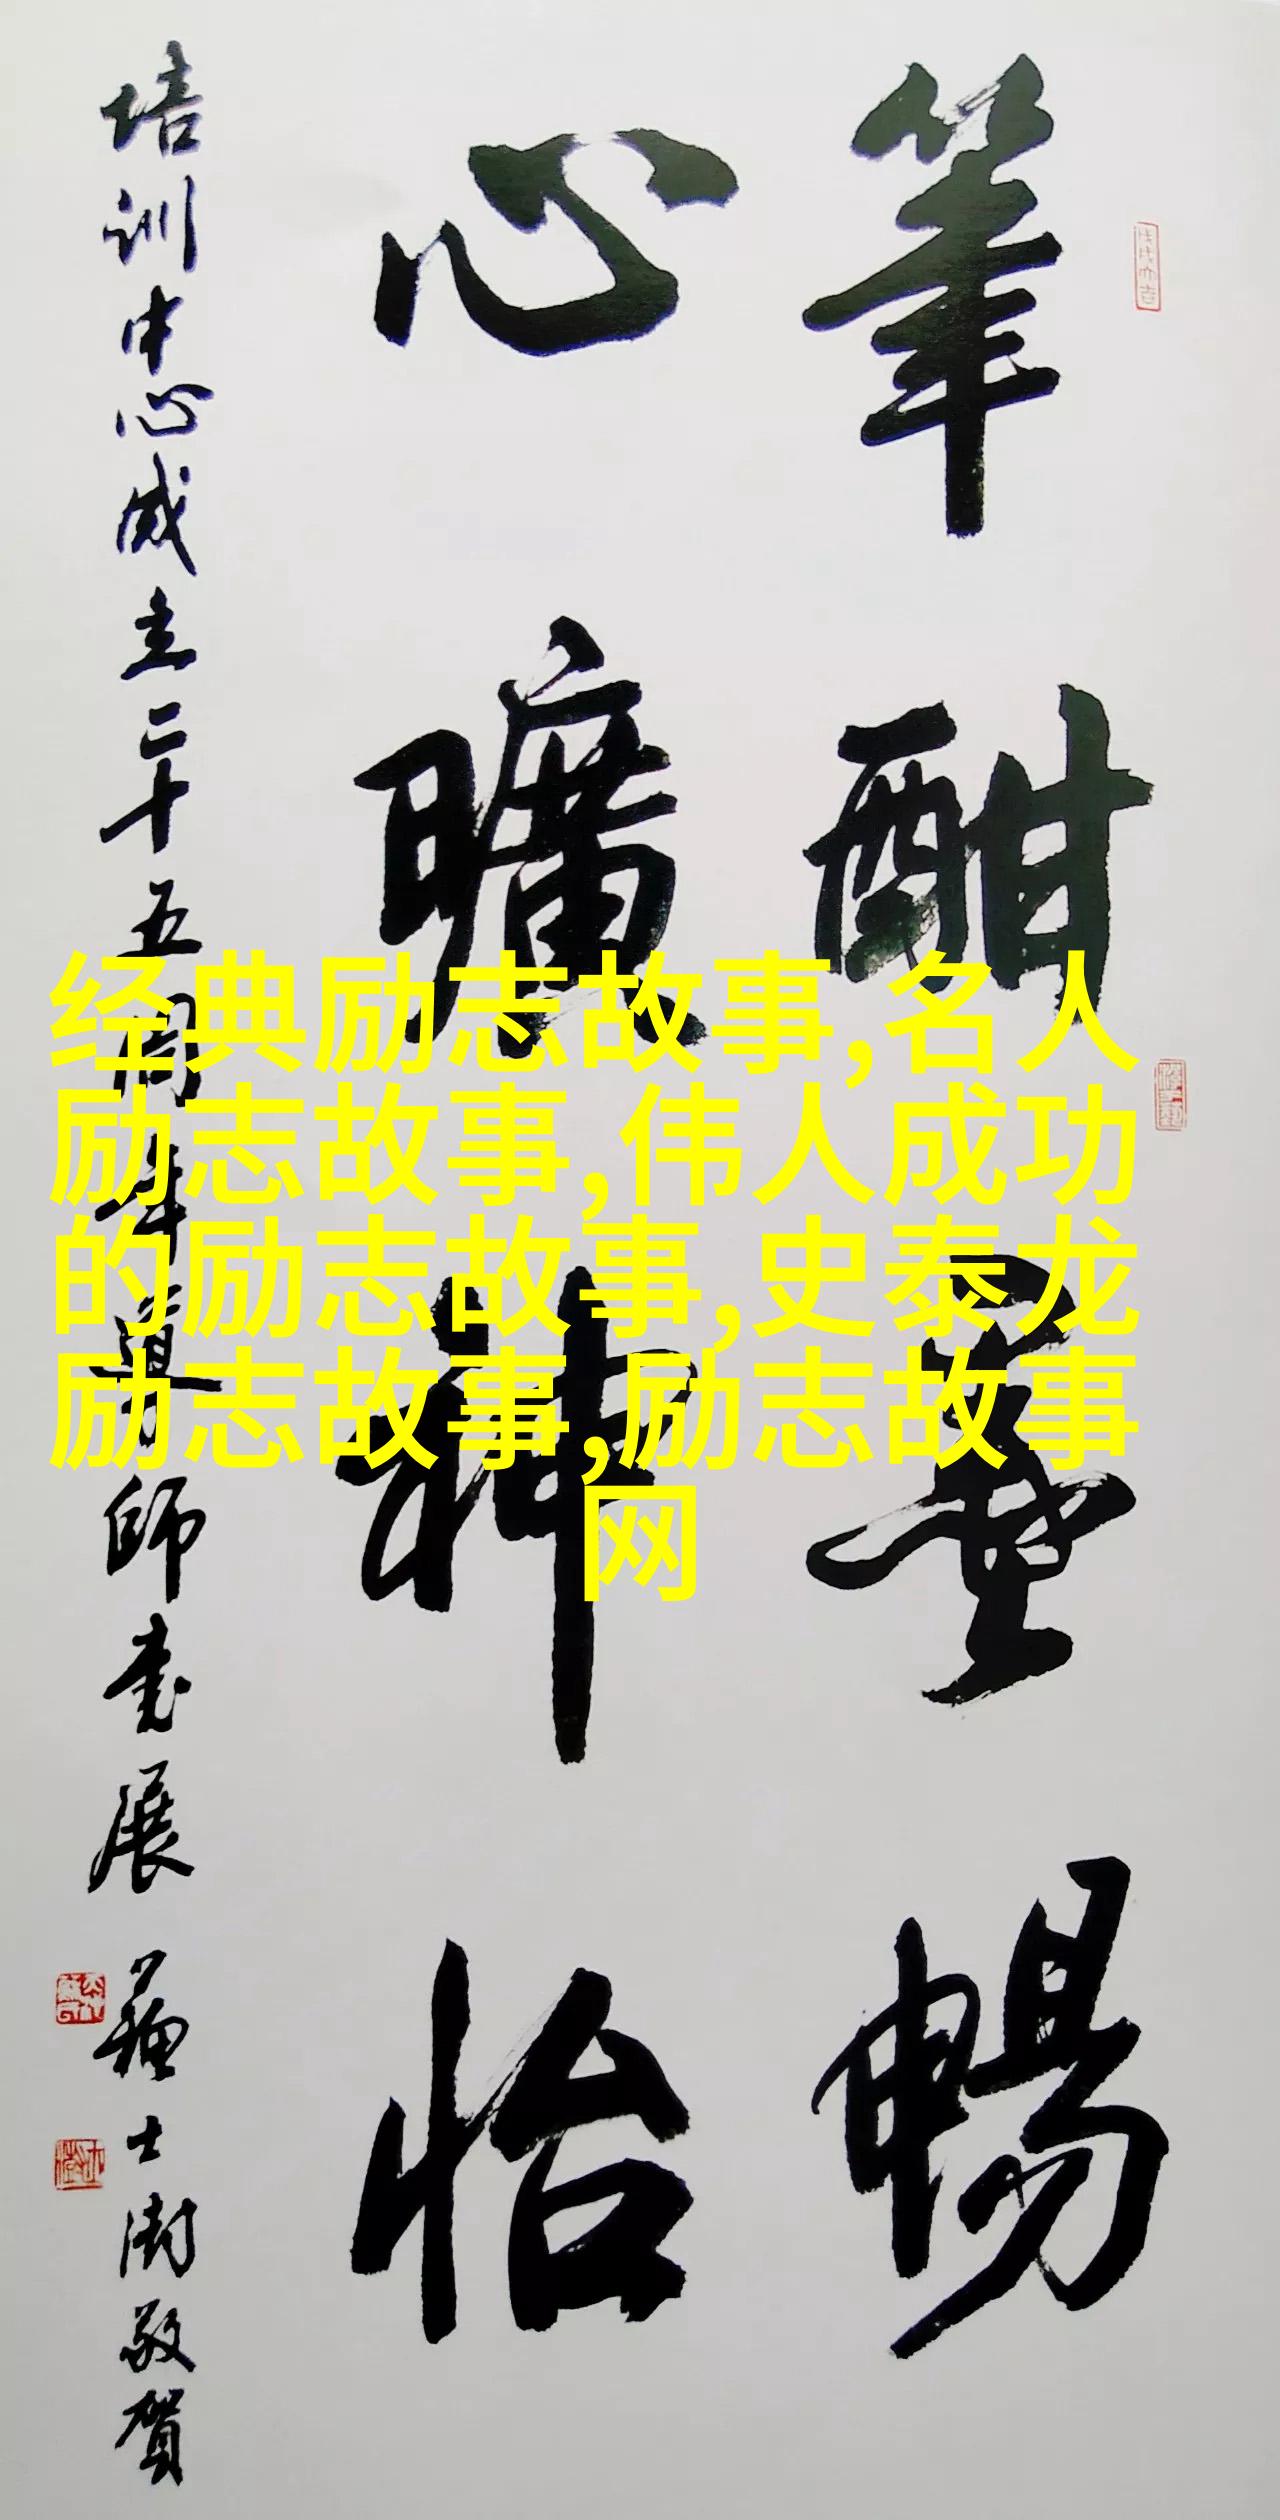 筆酣墨暢
心曠神怡
培训中心成立二十五周年導师書展 蘇士澍敬賀
经典励志故事,名人
励志故事,伟人成功
的励志故事,史泰龙
励志故事,励志故事
网